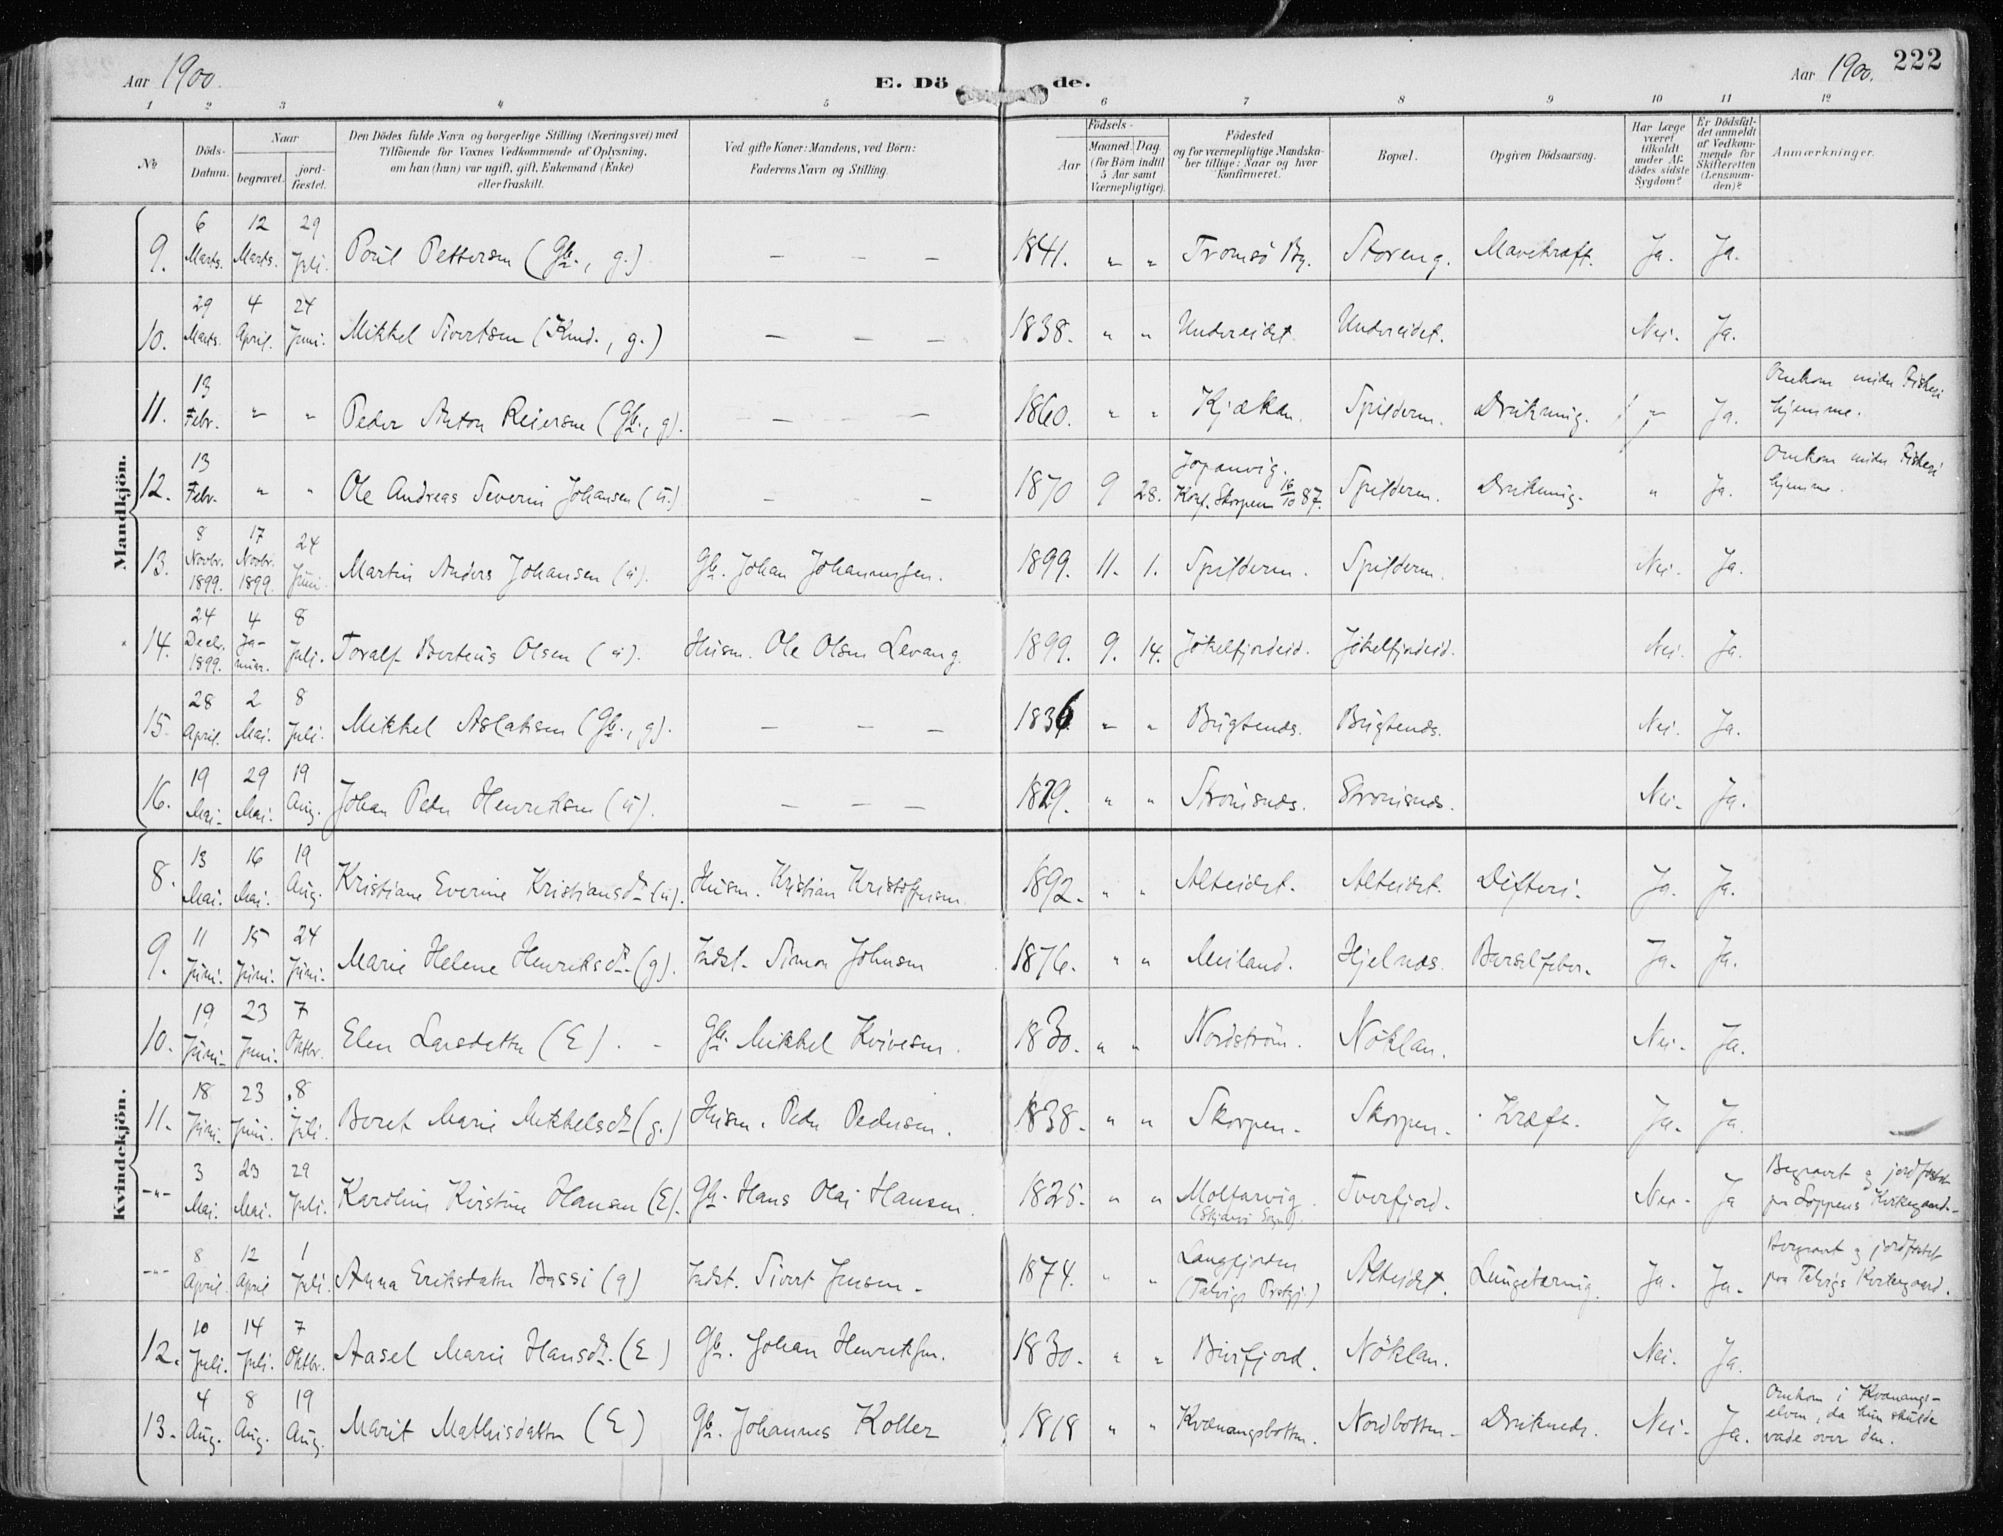 Aar 1900.
E. Döde.
Aar 1900. 222
1 2 3 4 5 6 7 8 9 10 11 12
No
Döds-Datum.
Naar
begravet.
jord-fæstet.
Den Dödes fulde Navn og borgerlige Stilling (Næringsvei) med
Tilföiende for Voxnes Vedkommende af Oplysning,
om han (hun) var ugift, gift, Enkemand (Enke)
eller fraskilt.
Ved gifte Koner: Mandens, ved Börn:
Faderens Navn og Stilling.
Födsels-
Aar
Maaned. Dag
(for Börn indtil
5 Aar samt
Værnepligtige).
Födested
og for værnepligtige Mandska-
ber tillige: Naar og hvor
konfirmeret.
Bopæl.
Opgiven Dödsaarsag.
Har Læge
været
tilkaldt
under Af-
dödes sidste
Sygdom?
Er Dödsfal-
det anmeldt
af Vedkom-
mende for
Skifteretten
(Lensman-
den)?
Anmærkninger.
Mandkjön.
9. 6 Marts. 12 Marts. 29 Juli. Poul Pettersen (Gbr., g.) — — — 1841. " " Tromsö By. Storeng. Mavekræft. Ja. Ja.
10. 29 Marts. 4 April. 24 Juni. Mikkel Sivertsen (Kund., g.) — — — 1838. " " Undereidet. Undereidet. Nei. Ja.
11. 13 Febr. " " Peder Anton Reiersen (Gbr., g). — — — 1860. " " Kjækan. Spilderen. Drukning. " Ja. Omkom under Fiskeri
hjemme.
12. 13 Febr. " " Ole Andreas Severin Johansen (u.) — — — 1870 9 28. Jopanvig.
Konf. Skorpen 16/10 87. Spilderen. Drukning. " Ja. Omkom under Fiskeri
hjemme.
13. 8 Novbr. 1899. 17 Novbr. 1899. 24 Juni. Martin Anders Johansen (u). Gbr. Johan Johannessen. 1899. 11. 1. Spilderen. Spilderen. Nei. Ja.
14. 24 Decbr. 1899. 4 Januar. 8 Juli. Toralf Berteus Olsen (u). Husm. Ole Olsen Levang. 1899. 9. 14. Jökelfjordeid. Jökelfjordeid. Nei. Ja.
15. 28 April. 2 Mai. 8 Juli. Mikkel Aslaksen (Gbr., g). — — — 1836 " " Bugtenæs. Bugtenæs. Nei. Ja.
16. 19 Mai. 29 Mai. 19 Aug. Johan Peder Henriksen (u). — — — 1829. " " Strömsnæs. Strömsnæs. Nei. Ja.
Kvindekjön.
8. 13 Mai. 16 Mai. 19 Aug. Kristiane Everine Kristiansdr (u). Husm. Kristian Kristoffersen. 1892. " " Alteidet. Alteidet. Difteri. Ja. Ja.
9. 11 Juni. 15 Juni. 24 Juni. Marie Helene Henriksdr. (g). Indst. Simon Johnsen 1876. " " Meiland. Hjelnæs. Barselfeber. Ja. Ja.
10. 19 Juni. 23 Juni. 7 Oktbr. Elen Larsdatter (E). Gbr. Mikkel Kvivesen. 1830. " " Nordström. Nöklan. Nei. Ja.
11. 18 Juni. 23 Juni. 8 Juli. Beret Marie Mikkelsdr (g.) Husm. Peder Pedersen. 1838. " " Skorpen. Skorpen. Kræft. Ja. Ja.
-"- 3 Mai. 23 Mai. 29 Juli. Karoline Kirstine Hansen (E). Gbr. Hans Olai Hansen. 1825. " " Moltarvig
(Skjervö Sogn). Tverfjord. Nei. Ja Begravet og jordfæstet
paa Loppens Kirkegaard.
-"- 8 April. 12 April 1 Juli. Anna Eriksdatter Bassi (g) Indst. Sivert Jensen. 1874. " " Langfjorden
(Talvigs Prstgj.) Alteidet. Lungetæring. Ja. Ja. Begravet og jordfæstet
paa Talvigs Kirkegaard.
12. 10 Juli. 14 Juli. 7 Oktbr. Aasel Marie Hansdr. (E) Gbr. Johan Henriksen. 1830. " " Burfjord. Nöklan. Nei. Ja.
13. 4 Aug. 8 Aug. 19 Aug. Marit Mathisdatter (E) Gbr. Johannes Koller 1818 " " Kvænangsbotten. Nordbotten. Druknede. Nei. Ja. Omkom i Kvænangs-
elven, da hun skulde
vade over den.